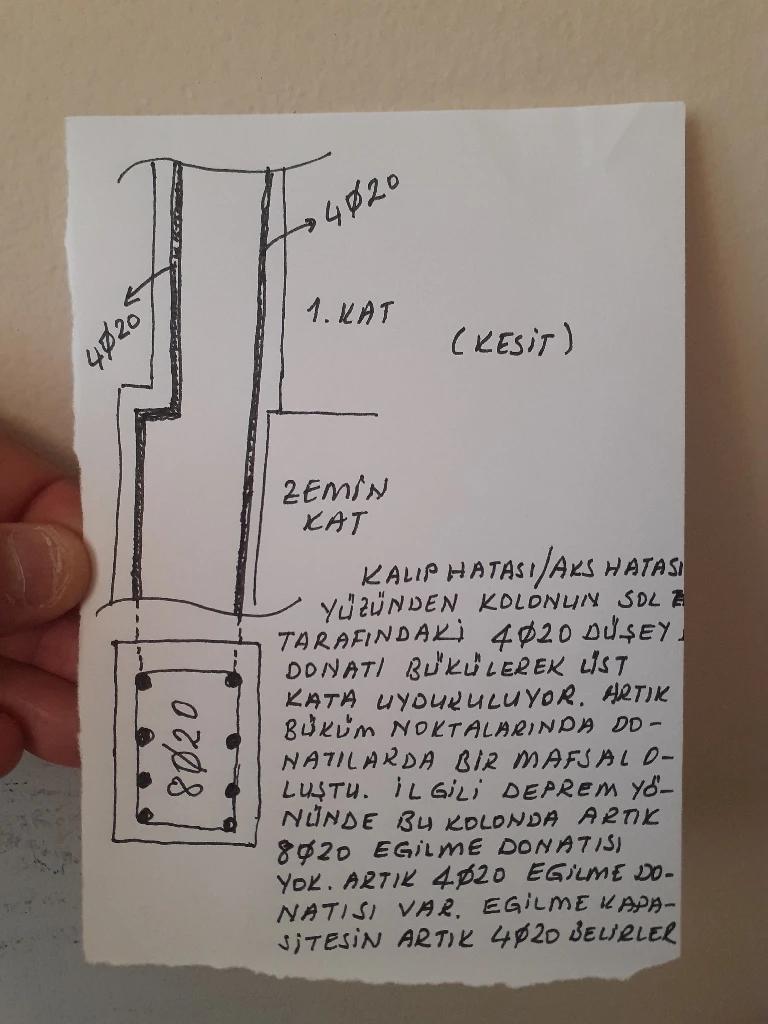 4Ø20
4Ø20
1. KAT
(KESİT)
ZEMİN
KAT
KALIP HATASI/AKS HATASI
YÜZÜNDEN KOLONUN SOL
TARAFINDAKİ 4Ø20 DÜŞEY
DONATI BÜKÜLEREK ÜST
KATA UYDURULUYOR. ARTIK
BÜKÜM NOKTALARINDA DO-
NATILARDA BİR MAFSAL O-
LUŞTU. İLGİLİ DEPREM YÖ-
NÜNDE BU KOLONDA ARTIK
8Ø20 EĞİLME DONATISI
YOK. ARTIK 4Ø20 EĞİLME DO-
NATISI VAR. EĞİLME KAPA-
SİTESİN ARTIK 4Ø20 BELİRLER
8Ø20